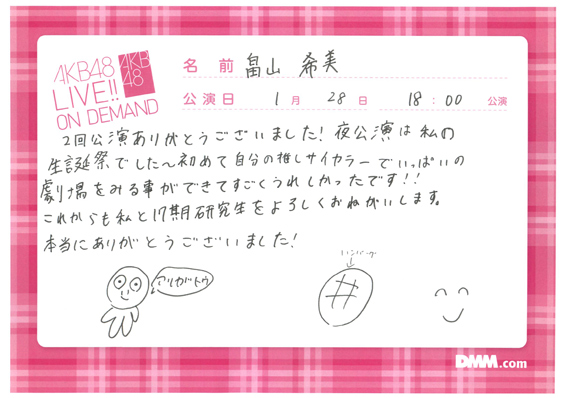 AKB48
LIVE!!
ON DEMAND
AKB
48
名前 畠山 希美
公演日 1月 28日 18:00 公演
2回公演ありがとうございました!夜公演は私の
生誕祭でした〜初めて自分の推しサイカラーでいっぱいの
劇場をみる事ができてすごくうれしかったです!!
これからも私と17期研究生をよろしくおねがいします。
本当にありがとうございました!
アリガトウ
ハンバーグ
DMM.com